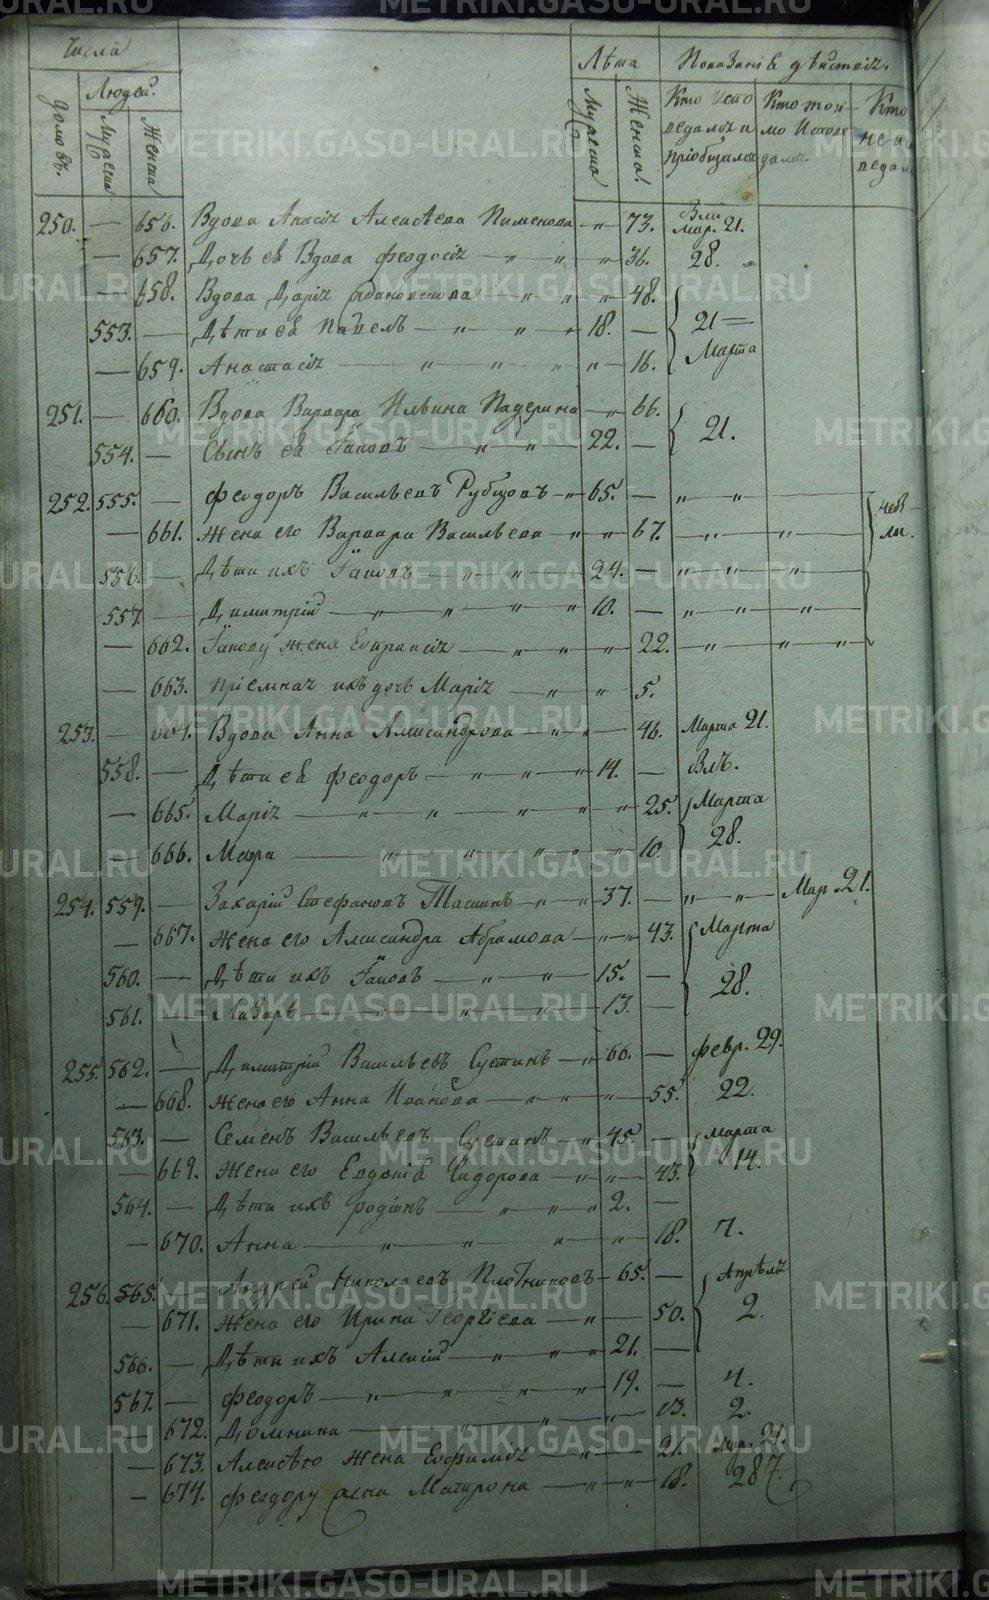 Числа
Людей.
домовъ.
Мужеска
Женска
Лѣта
Мужеска
Женска.
Показаніе дѣйствіх.
Кто испо
ведался и
пріобщился
Кто ток
мо Испове
дался.
Кто
не
ведал
250. — 656. Вдова Алексѣева Пименова — " — 73. Мар. 21.
— 657. Дочь ея Вдова Феодосія — " — " — " — 36. 28.
— 658. Вдова Дарія " — " — " — 48.
553. — Дѣти ея Павелъ — " — " — " 18. — 21 — Марта
— 659. Анастасія — " — " — " — " — 16.
251. — 660. Вдова Варвара Ильина Падерина — " — 66. 21.
554. — Сынъ ея Іаковъ — " — " — 22. —
252. 555. — Феодоръ Васильевъ Рубцовъ — " — 65. — " — "
— 661. Жена его Варвара Васильева — " — " — 67. — " — "
556. — Дѣти ихъ Іаковъ — " — " — 24. — " — " — "
557. — Димитрій — " — " — " — " 10. — " — " — "
— 662. Іакову жена — " — " — " — 22. — " — " — "
— 663. Пріемная ихъ дочь Марія — " — " — 5.
253. — 664. Вдова Анна Александрова — " — " — 46. Марта 21.
558. — Дѣти ея Феодоръ — " — " — " — 14. —
— 665. Марія — " — " — " — " — " 25. Марта
— 666. — " — " — " — " — " 10. 28.
254. 559. — Захарій Стефановъ — " — " — 37. — " — " — Мар. 21.
— 667. Жена его Александра Абрамова — " — " 43. Марта
560. — Дѣти ихъ Іаковъ — " — " — 15. — 28.
561. — Лазарь — " — " — " — 13. —
255. 562. — Димитрій Васильевъ Сустинъ — " 66. — Февр. 29.
— 668. Жена его Анна Иванова — " — " — " — 55. 22.
563. — Семенъ Васильевъ Сустинъ — " 45. — Марта
— 669. Жена его Евдокія Сидорова — " — " — 43. 14.
564. — Дѣти ихъ Родіонъ — " — " — 2. —
— 670. Анна — " — " — " — " — 18. 7.
256. 565. — Андрей Николаевъ Плотниковъ — 65. — Апрѣля
— 671. Жена его Ирина Георгіева — " — 50. 2.
566. — Дѣти ихъ Алексій — " — " — " — 21. —
567. — Феодоръ — " — " — " — " 19. — 4.
— 672. Домника — " — " — " — 13. 2.
— 673. Алексѣю жена Евфимія — " — 21. Мар. 21.
— 674. Феодору жена Матрона — " — " — 18. 28
METRIKI.GASO-URAL.RU